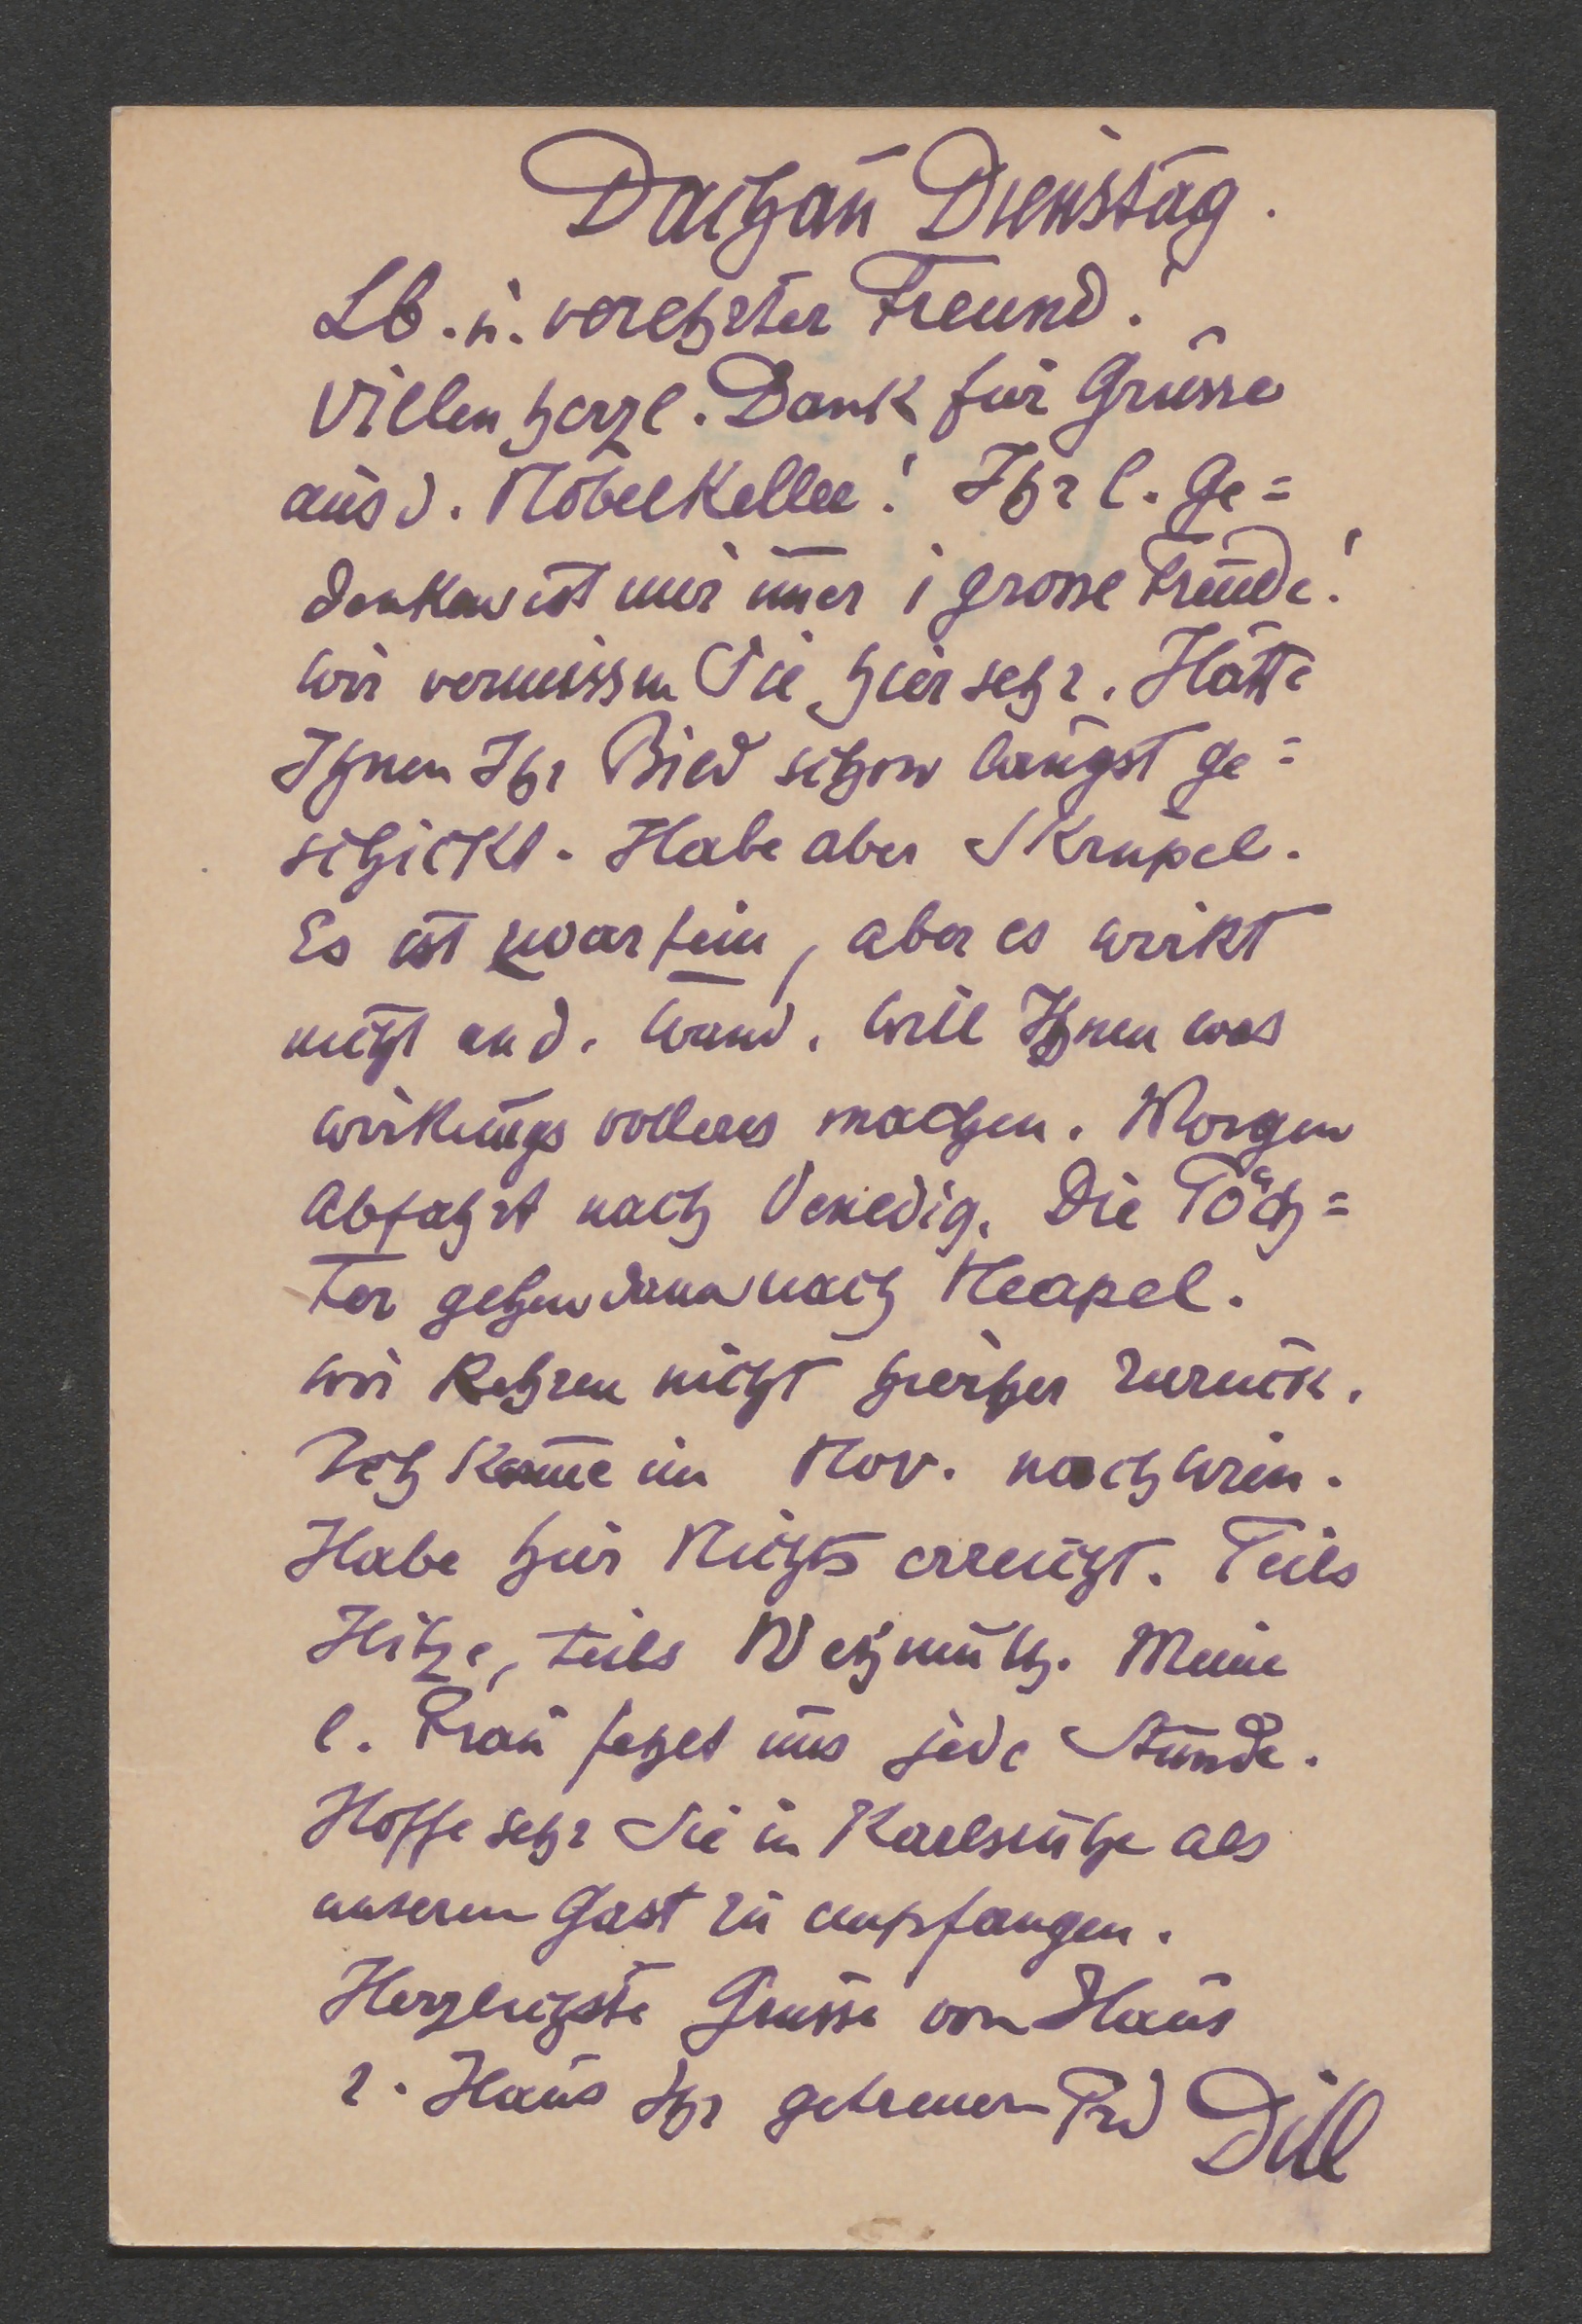 Dachau Dienstag.
Lb. u. verehrter Freund!
Vielen herzl. Dank für Grüsse
aus d. Möbelkeller! Ihr l. Ge=
denken ist mir im̅er i grosse Freude!
Wir vermissen Sie hier sehr. Hätte
Ihnen Ihr Bild schon längst ge=
schickt. Habe aber Skrupel.
Es ist zwar fein, aber es wirkt
nicht an d. Wand. Will Ihnen was
wirkungsvolleres machen. Morgen
Abfahrt nach Venedig. Die Töch=
ter gehen dann nach Neapel.
Wir kehren nicht hierher zurück.
Ich kom̅e im Nov. nach Wien.
Habe hier Nichts erreicht. Teils
Hitze, teils Wehmuth. Meine
l. Frau fehlt uns jede Stunde.
Hoffe sehr Sie in Karlsruhe als
unseren Gast zu empfangen.
Herzlichste Grüsse von Haus
z. Haus Ihr getreuer Frd Dill